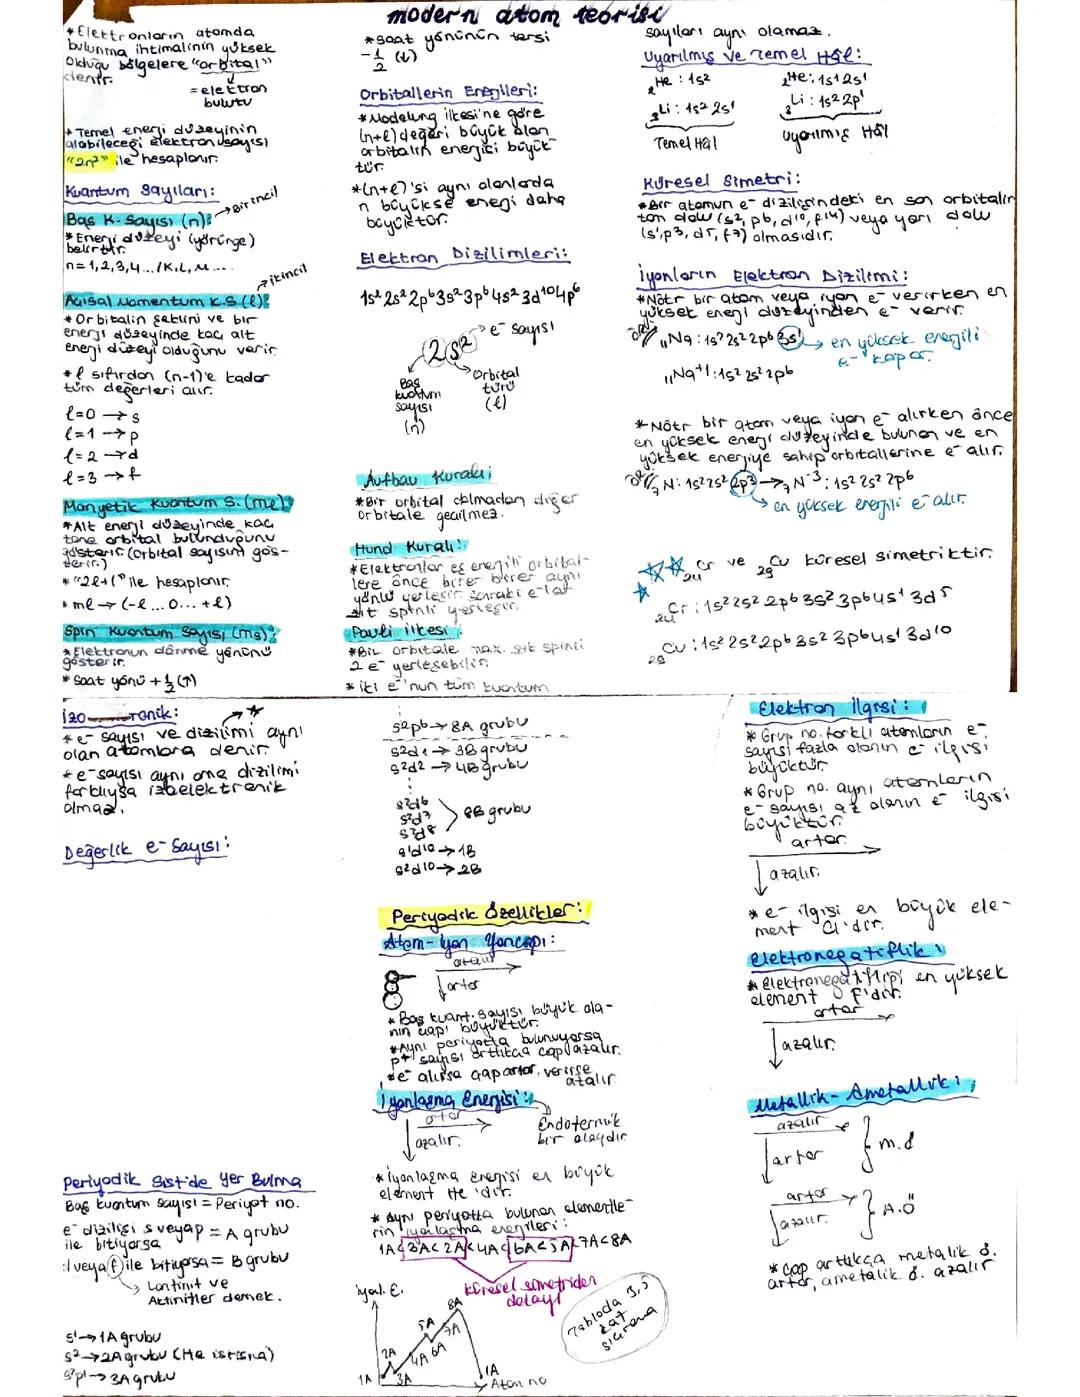 modern atom teorisi
* Elektronların atomda
bulunma ihtimalinin yüksek
Olduğu bölgelere "orbital"
denir.
= elektron
bulutu
* Temel enerji düzeyinin
alabileceği elektron sayısı
"2n²" ile hesaplanır.
Kuantum Sayıları:
Baş K. Sayısı (n): → Birincil
* Enerji düzeyi (yörünge)
belirtir.
n = 1, 2, 3, 4... / K, L, M....
Açısal Momentum K.S (ℓ): → ikincil
* Orbitalin şeklini ve bir
enerji düzeyinde kaç alt
enerji düzeyi olduğunu verir.
* ℓ sıfırdan (n-1)'e kadar
tüm değerleri alır.
ℓ=0 → s
ℓ=1 → p
ℓ=2 → d
ℓ=3 → f
Manyetik Kuantum S. (mℓ):
* Alt enerji düzeyinde kaç
tane orbital bulunduğunu
gösterir (orbital sayısını gös-
terir.)
* "2ℓ+1" ile hesaplanır.
* mℓ → (-ℓ ... 0... +ℓ)
Spin Kuantum Sayısı (ms):
* Elektronun dönme yönünü
gösterir.
* Saat yönü +½ (↑)
* Saat yönünün tersi
-½ (↓)
Orbitallerin Enerjileri:
* Modelung ilkesi'ne göre
(n+ℓ) değeri büyük olan
orbitalin enerjisi büyük-
tür.
* (n+ℓ)'si aynı olanlarda
n büyükse enerji daha
büyüktür.
Elektron Dizilimleri:
1s² 2s² 2p⁶ 3s² 3p⁶ 4s² 3d¹⁰ 4p⁶
2s² → e⁻ sayısı
Baş
kuantum
sayısı
(n)
Orbital
türü
(ℓ)
Aufbau Kuralı:
* Bir orbital dolmadan diğer
orbitale geçilmez.
Hund Kuralı:
* Elektronlar eş enerjili orbital-
lere önce birer birer aynı
yönlü yerleşir. Sonraki e-lar
zıt spinli yerleşir.
Pauli ilkesi:
* Bir orbitale max. zıt spinli
2 e⁻ yerleşebilir.
* İki e⁻'nun tüm kuantum
sayıları aynı olamaz.
Uyarılmış ve Temel Hâl:
₂He : 1s² ₂He : 1s¹ 2s¹
₃Li : 1s² 2s¹ ₃Li : 1s² 2p¹
Temel Hâl Uyarılmış Hâl
Küresel Simetri:
* Bir atomun e⁻ dizilişindeki en son orbitalin
tam dolu (s², p⁶, d¹⁰, f¹⁴) veya yarı dolu
(s¹, p³, d⁵, f⁷) olmasıdır.
İyonların Elektron Dizilimi:
* Nötr bir atom veya iyon e⁻ verirken en
yüksek enerji düzeyinden e⁻ verir.
ör/ ₁₁Na : 1s² 2s² 2p⁶ 3s¹ → en yüksek enerjili
e⁻ kopar.
₁₁Na⁺¹ : 1s² 2s² 2p⁶
* Nötr bir atom veya iyon e⁻ alırken önce
en yüksek enerji düzeyinde bulunan ve en
yüksek enerjiye sahip orbitallerine e⁻ alır.
ör/ ₇N : 1s² 2s² 2p³ → ₇N⁻³ : 1s² 2s² 2p⁶
→ en yüksek enerjili e⁻ alır.
₂₄Cr ve ₂₉Cu küresel simetriktir.
₂₄Cr : 1s² 2s² 2p⁶ 3s² 3p⁶ 4s¹ 3d⁵
₂₉Cu : 1s² 2s² 2p⁶ 3s² 3p⁶ 4s¹ 3d¹⁰
* e⁻ sayısı ve dizilimi aynı
olan atomlara denir.
* e⁻ sayısı aynı ama dizilimi
farklıysa izoelektronik
olmaz.
Değerlik e⁻ Sayısı:
Periyodik Sist'de Yer Bulma
Baş kuantum sayısı = Periyot no.
e⁻ dizilişi s veya p = A grubu
ile bitiyorsa
d veya f ile bitiyorsa = B grubu
→ Lantinit ve
Aktinitler demek.
s¹ → 1A grubu
s² → 2A grubu (He istisna)
s²p¹ → 3A grubu
s²p⁶ → 8A grubu
s²d¹ → 3B grubu
s²d² → 4B grubu
s²d⁶
s²d⁷ 8B grubu
s²d⁸
s¹d¹⁰ → 1B
s²d¹⁰ → 2B
Periyodik Özellikler:
Atom-İyon Yarıçapı:
azalır
artar
* Baş kuant. sayısı büyük ola-
nın çapı büyüktür.
* Aynı periyotta bulunuyorsa
p⁺ sayısı arttıkça çap azalır.
* e⁻ alırsa çap artar, verirse
azalır
İyonlaşma Enerjisi: → Endotermik
bir olaydır
artar
azalır.
* İyonlaşma enerjisi en büyük
element He 'dir.
* Aynı periyotta bulunan elementle-
rin iyonlaşma enerjileri:
1A<3A<2A<4A<6A<5A<7A<8A
küresel simetriden
dolayı
İyonl. E.
1A 2A 3A 4A 5A 6A 7A 8A 1A
Atom no
Tabloda 3,5
kat
Elektron ilgisi:
* Grup no. farklı atomların e⁻
sayısı fazla olanın e⁻ ilgisi
büyüktür.
* Grup no. aynı atomların
e⁻ sayısı az olanın e⁻ ilgisi
büyüktür.
artar.
azalır.
* e⁻ ilgisi en büyük ele-
ment Cl'dir.
Elektronegatiflik:
* Elektronegatifliği en yüksek
element F'dir.
artar
azalır.
Metallik-Ametallik:
azalır
artar } m.ö
artar
azalır. } A.Ö
* Çap arttıkça metalik ö.
artar, ametalik ö. azalır